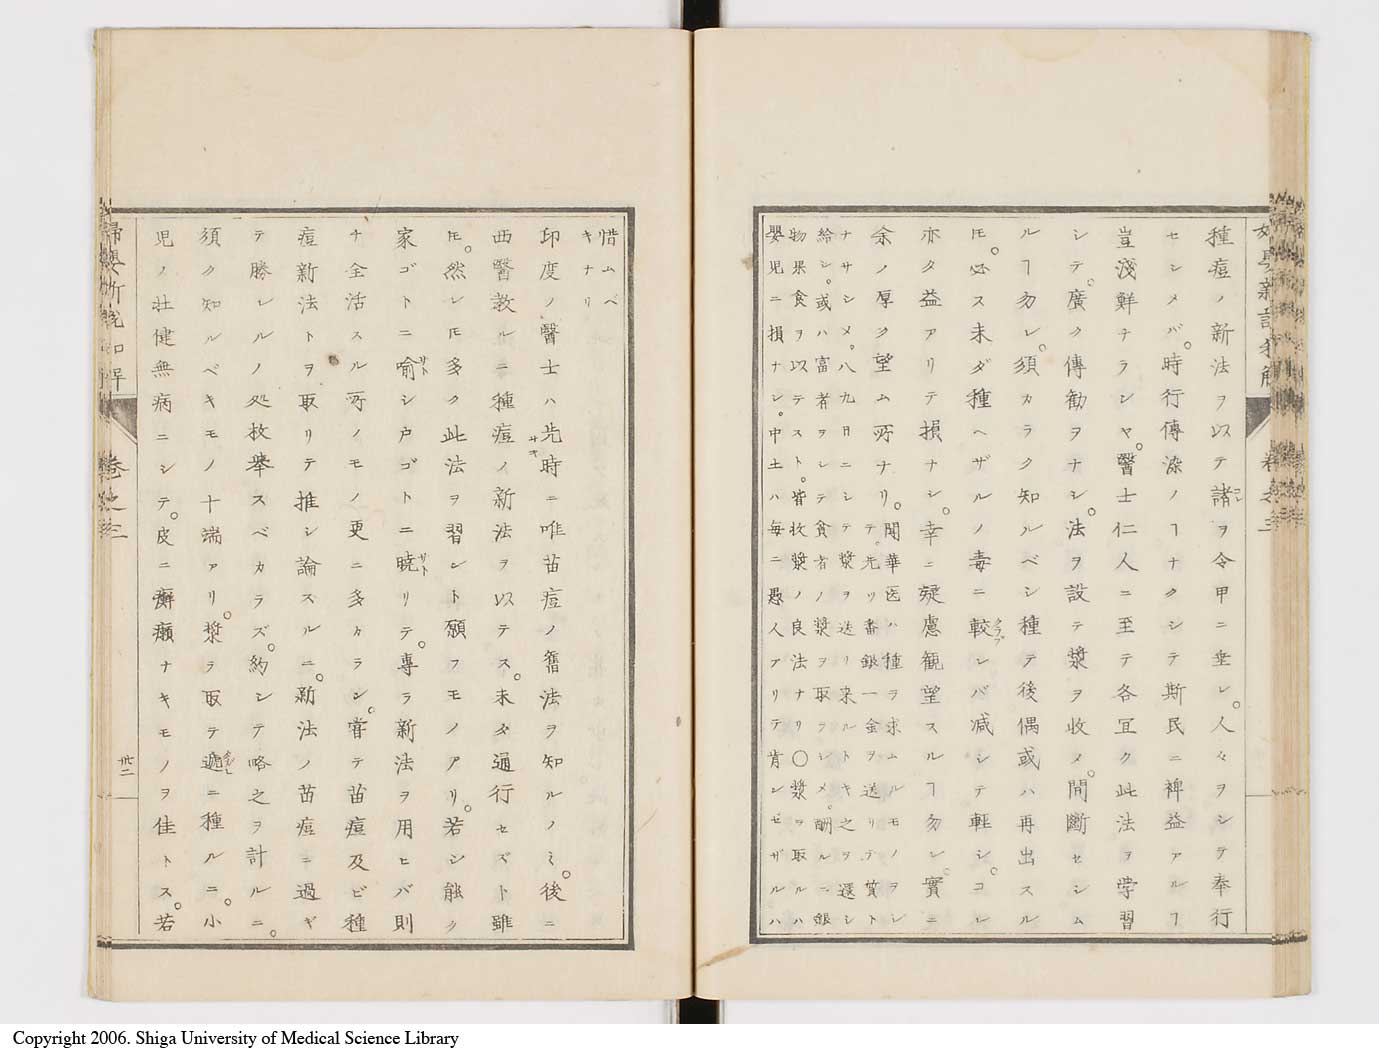 種痘ノ新法ヲ以テ諸ヲ令甲ニ垂レ。人々ヲシテ奉行
セシメバ。時行傳染ノヿナクシテ斯民ニ裨益アルヿ
豈淺鮮ナランヤ。醫士仁人ニ至テ各宜ク此法ヲ学習
シテ。廣ク傳勧ヲナシ。法ヲ設テ漿ヲ收メ。間斷セシム
ルヿ勿レ。須カラク知ルベシ種テ後偶或ハ再出スル
𪜈。必ス未ダ種ヘザルノ毒ニ較シバ減シテ軽シ。コレ
亦タ益アリテ損ナシ。幸ニ疑慮観望スルヿ勿レ。實ニ
余ノ厚ク望ム所ナリ。聞華医ハ種ヲ求ムルモノヲシ
テ。先ツ番銀一金ヲ送リテ質ト
ナサシメ。八九日ニシテ漿ヲ送リ来ルトキ之ヲ還シ
給シ。或ハ富者ヲシテ貧者ノ漿ヲ取ラシメ。酬ルニ銀
物果食ヲ以テスト。皆收漿ノ良法ナリ〇漿ヲ取ルハ
嬰児ニ損ナシ。中土ハ毎ニ愚人アリテ肯ンゼザルハ
卷之三
惜ムベ
キナリ
印度ノ醫士ハ先時ニ唯苗痘ノ舊法ヲ知ルノミ。後ニ
西醫教ルニ種痘ノ新法ヲ以テス。未タ通行セズト雖
𪜈。然レ𪜈多ク此法ヲ習シト願フモノアリ。若シ能ク
家ゴトニ喻シ戸ゴトニ曉リテ。專ラ新法ヲ用ヒバ則
ナ全活スル所ノモノ更ニ多カラン。嘗テ苗痘及ビ種
痘新法トヲ取リテ推シ論スルニ。新法ノ苗痘ニ過ギ
テ勝レルノ処枚舉スベカラズ。約シテ略之ヲ計ルニ。
須ク知ルベキモノ十端アリ。漿ヲ取テ遞ニ種ルニ。小
児ノ壮健無病ニシテ。皮ニ癬癩ナキモノヲ佳トス。若
卷之三
卅二
Copyright 2006. Shiga University of Medical Science Library